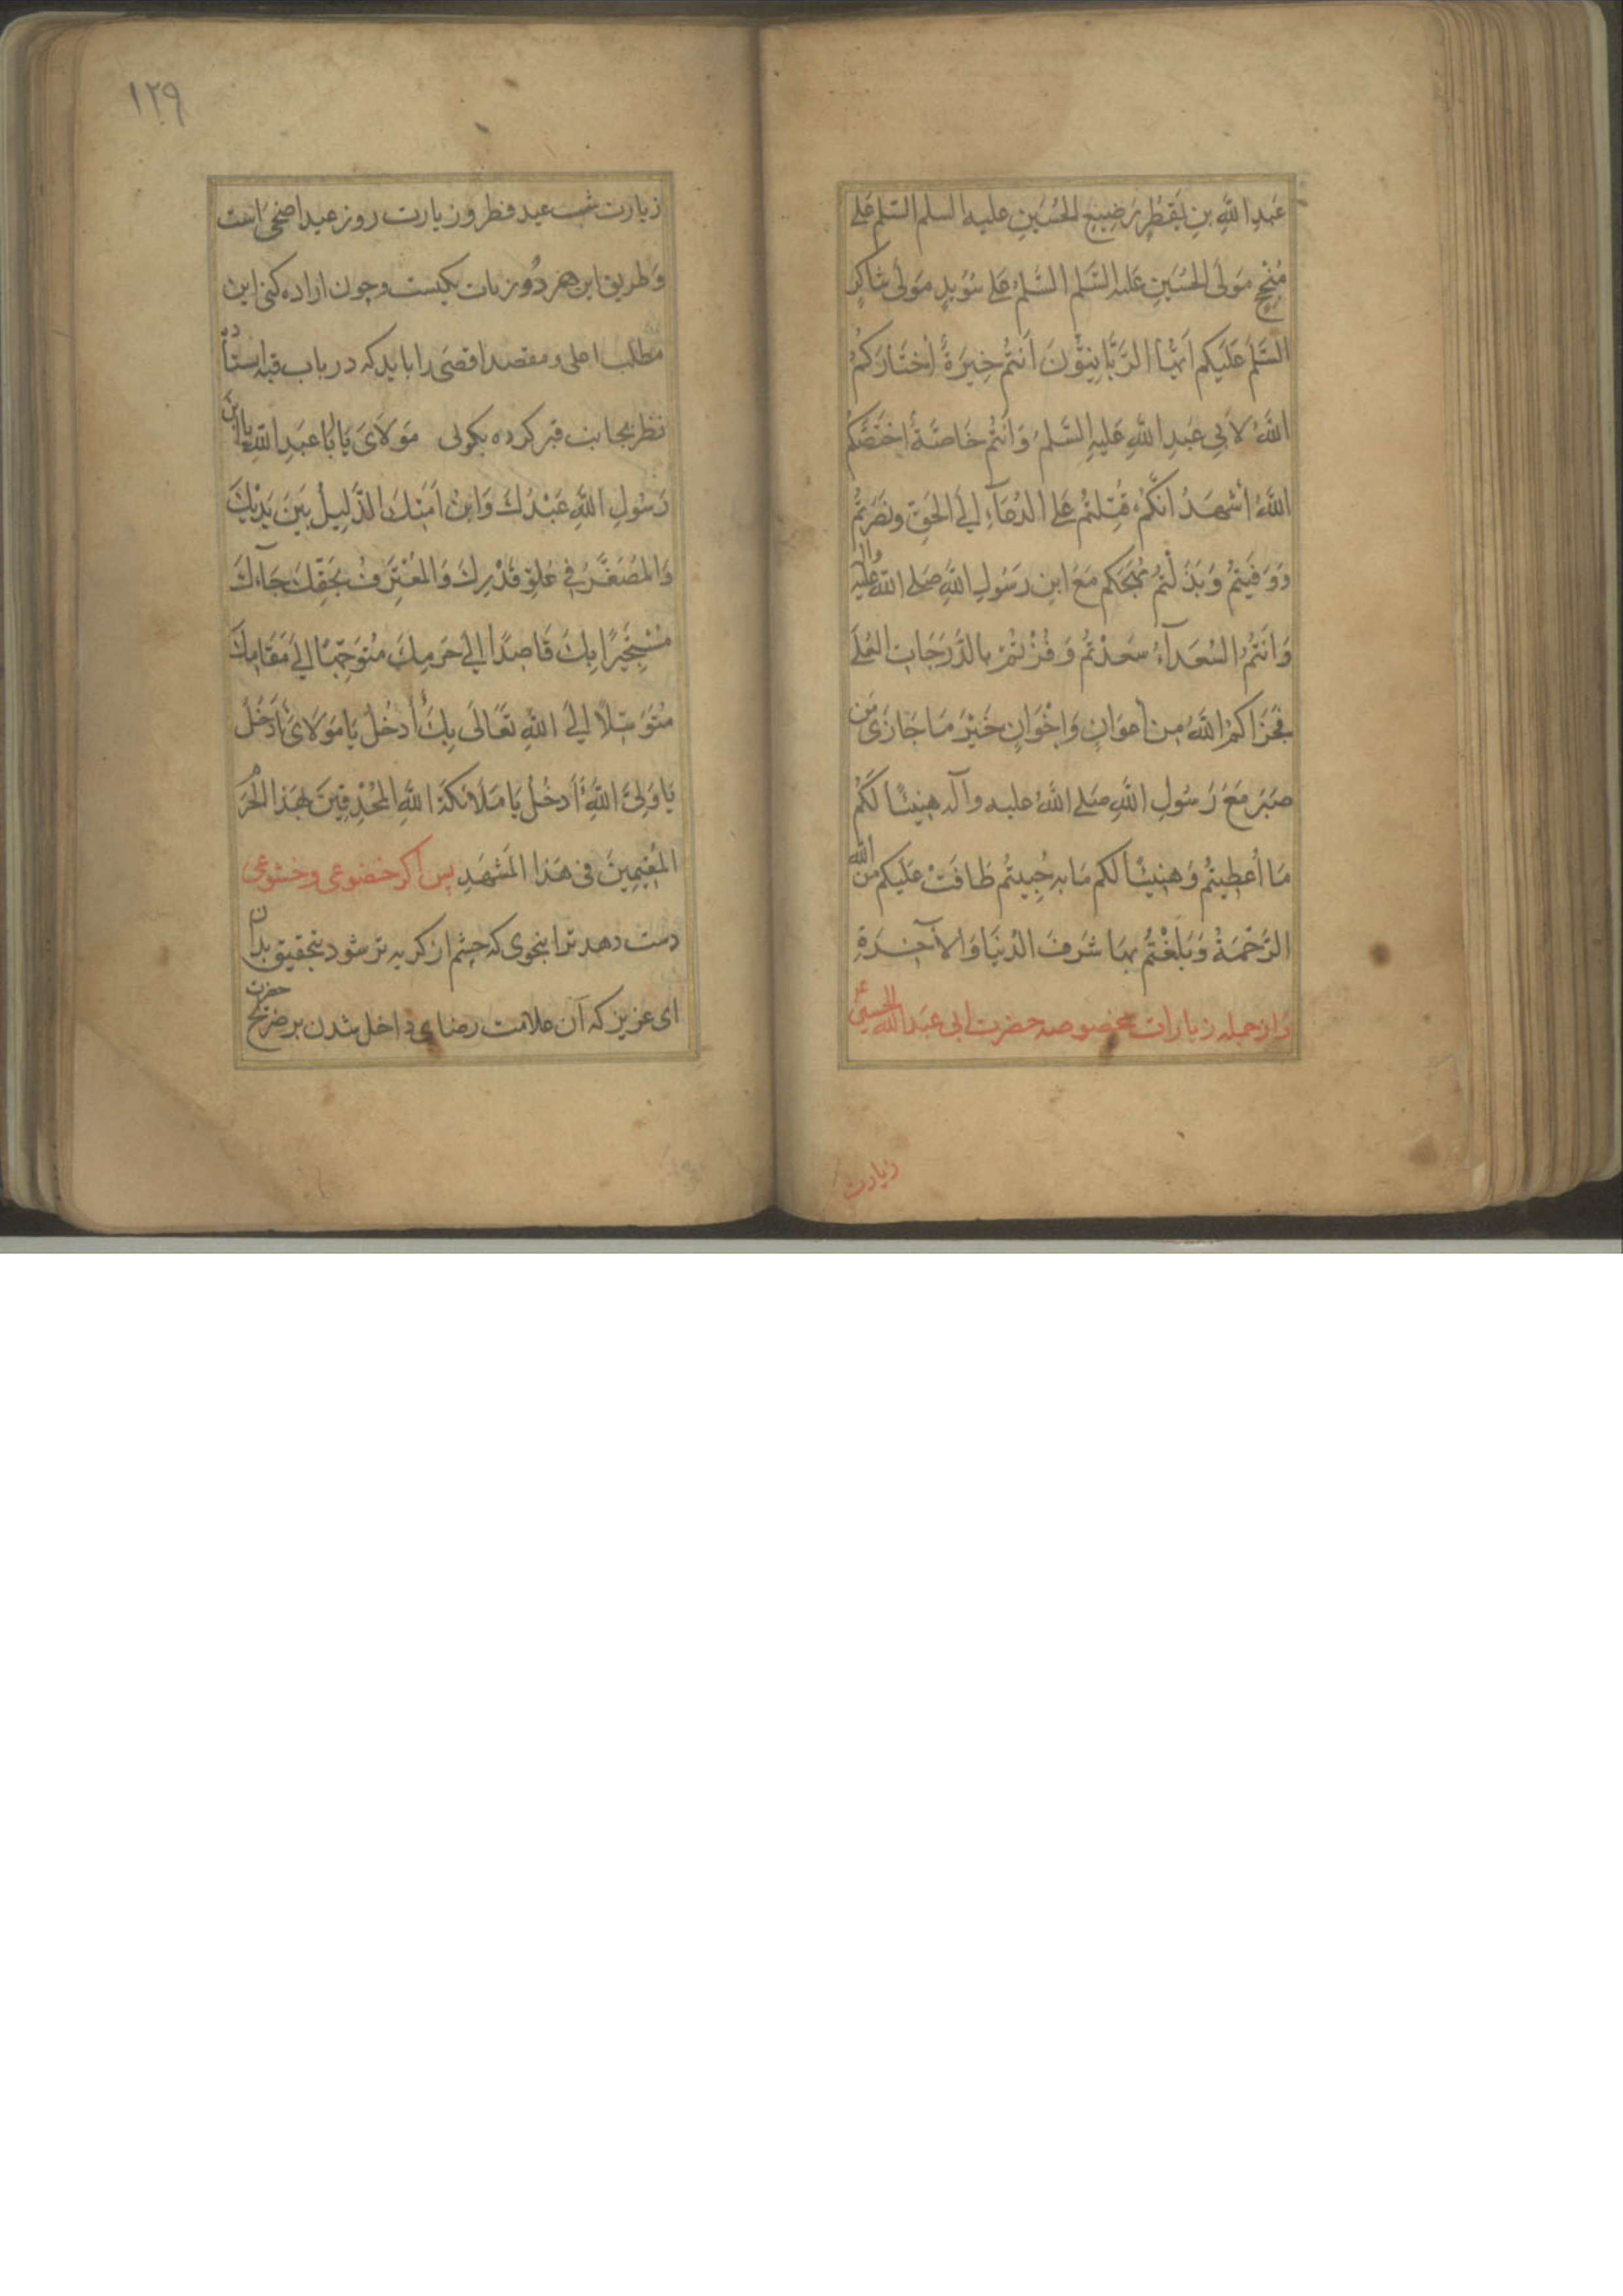 عَبدِ اللّٰهِ بنِ يَقطُرٍ رَضِيعِ الحُسَينِ عليه السلم السّلم عَلى
مُنْجِحٍ مَولَى الحُسَينِ عَلَيهِ السَّلم السَّلمُ عَلى سُوَيدٍ مَولى شاكِرٍ
السَّلم عَلَيكُم اَيُّهَا الرَّبَّانِيُّونَ اَنتُم خِيَرَةٌ اختَارَكُمُ
اللّٰهُ لاَبِي عَبدِ اللّٰهِ عَلَيهِ السَّلم وَاَنتُم خَاصَّةٌ اختَصَّكُمُ
اللّٰهُ اَشهَدُ اَنَّكُم قُتِلتُم عَلَى الدُّعَآءِ اِلَى الحَقِّ ونَصَرتُم
وَوَفَيتُم وَبَذَلتُم مُهَجَكُم مَعَ ابنِ رَسُولِ اللّٰهِ صَلى اللّٰه عليه واله
وَاَنتُم السُّعَدَآءُ سَعِدتُم وَفُزتُم بِالدَّرَجَاتِ العُلَى
فَجَزَاكُمُ اللّٰهُ مِن اَعوَانٍ وَاِخوَانٍ خَيرَ مَا جَازَى مَن
صَبَرَ مَعَ رَسُولِ اللّٰهِ صَلى اللّٰهُ عليه وآله هَنِيئًا لَكُم
مَا اُعطِيتُم وَهَنِيئًا لَكُم مَا بِهِ حُيِيتُم طَافَت عَلَيكُم مِنَ اللّٰه
الرَّحمَةُ وَبَلَغتُم بِهَا شَرَفَ الدُّنيَا وَالآخِرَةِ
واز جمله زيارات مخصوصه حضرت ابى عَبدِ اللّٰه الحسين ع
زيارت
١٢٩
زيارت شب عيد فطر و زيارت روز عيد اضحى است
وطريق اين هر دو زيات يكيست وچون اراده كنى اين
مطلب اعلى ومقصد اقصى را بايد كه در باب قبه استاده
نظر بجانب قبر كرده بكوئى مَولَاىَ يَا اَبَا عَبدِ اللّٰهِ يَا ابنَ
رَسُولِ اللّٰهِ عَبدُكَ وَابنُ اَمَتِكَ الذَّلِيلُ بَينَ يَدَيكَ
وَالمُصَغَّرُ فِي عُلُوِّ قَدرِكَ وَالمُعتَرِفُ بِحَقِّكَ جَآءَكَ
مُستَجِيرًا بِكَ قَاصِدًا اِلى حَرَمِكَ مُتَوَجِّهًا اِلى مَقَامِكَ
مُتَوَسِّلًا اِلَى اللّٰهِ تَعَالَى بِكَ أَأَدخُلُ يَا مَولَاىَ أَأَدخُلُ
يَا وَلِىَّ اللّٰهِ أَأَدخُلُ يَا مَلَائكَةَ اللّٰهِ المُحدِقِينَ بِهَذَا الحَرَم
المُقِيمِينَ فى هَذَا المَشهَدِ پس اكر خضوعى وخشوعى
دست دهد ترا بنحوى كه چشم از كريه تر شود بتحقيق بدان
اى عزيز كه آن علامت رضاى داخل شدن بر ضريح حضرت